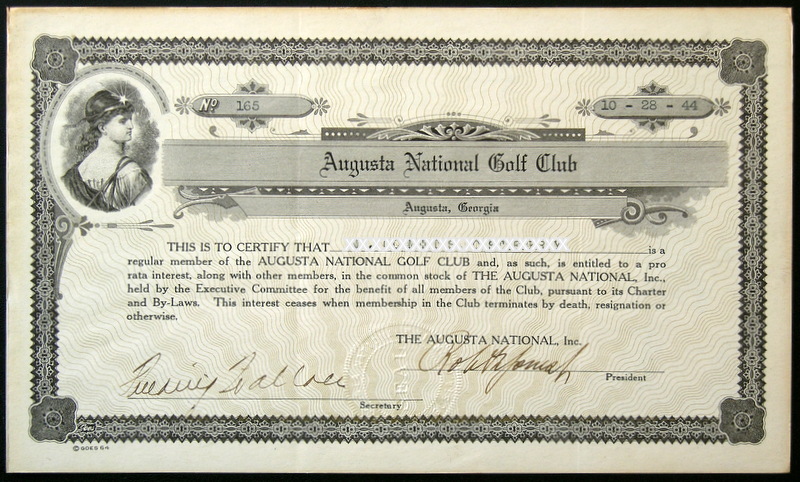 No 165
10 - 28 - 44
Augusta National Golf Club
Augusta, Georgia
THIS IS TO CERTIFY THAT is a
regular member of the AUGUSTA NATIONAL GOLF CLUB and, as such, is entitled to a pro
rata interest, along with other members, in the common stock of THE AUGUSTA NATIONAL, Inc.,
held by the Executive Committee for the benefit of all members of the Club, pursuant to its Charter
and By-Laws. This interest ceases when membership in the Club terminates by death, resignation or
otherwise.
THE AUGUSTA NATIONAL, Inc.
President
Secretary
© GOES 64